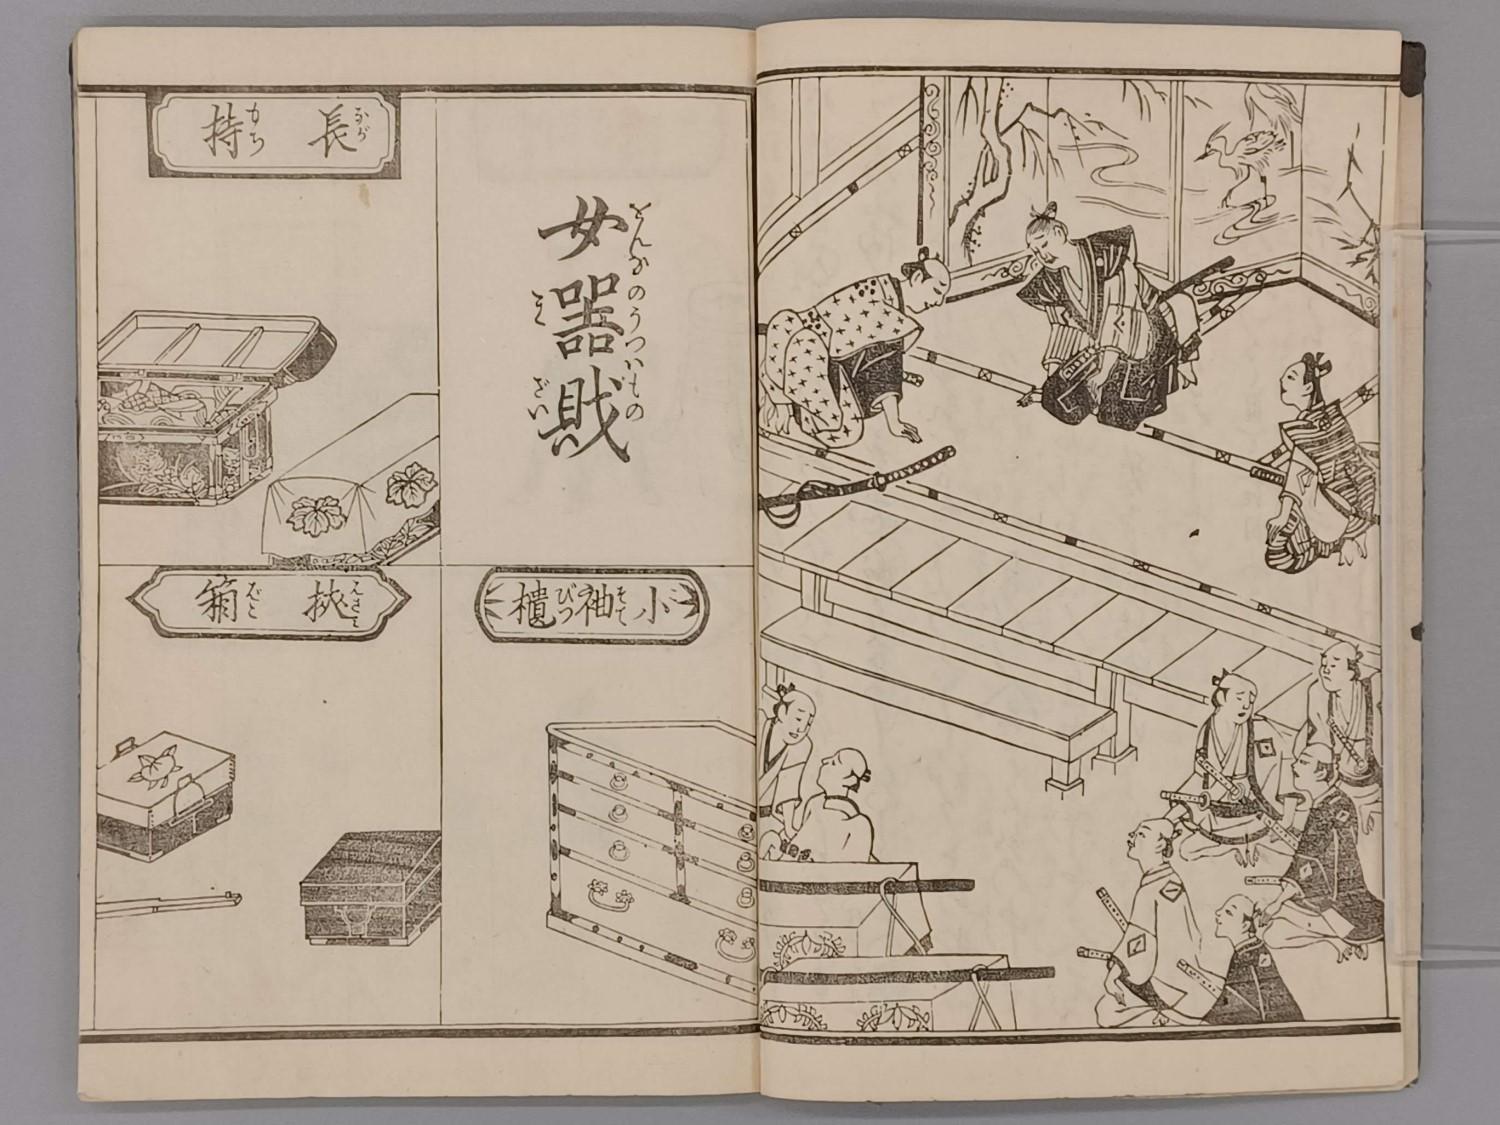 女器財
をんなのうつはもの
きざい
長持
ながもち
小袖櫃
こそでびつ
挾箱
はさみばこ